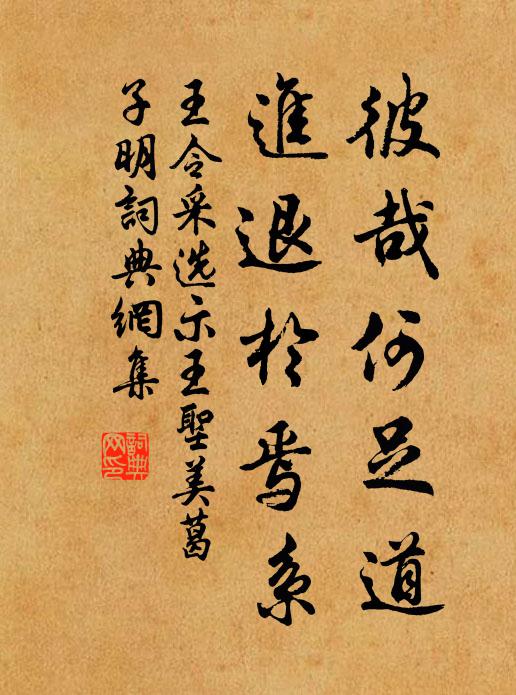 彼哉何足道
進退於焉系
王令采选示王聖美葛
子明詞典網集
詞典網印